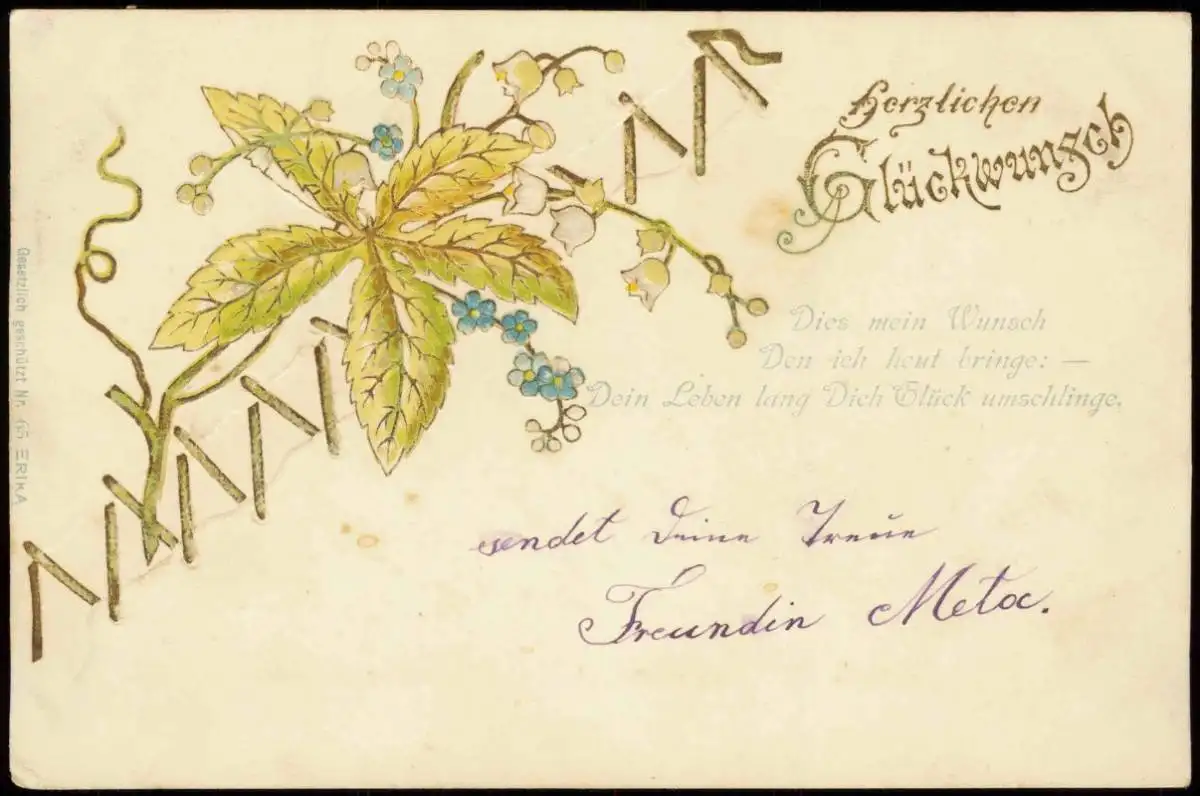 Herzlichen
Glückwunsch
Dies mein Wunsch
Den ich heut bringe: —
Dein Leben lang Dich Glück umschlinge.
sendet Deine Treue
Freundin Meta.
Gesetzlich geschützt Nr. 65 ERIKA